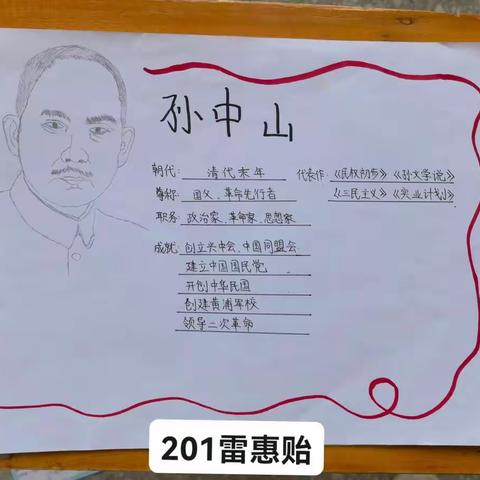 孙中山
朝代：清代末年 代表作：《民权初步》《孙文学说》
《三民主义》《实业计划》
尊称：国父、革命先行者
职务：政治家、革命家、思想家
成就：创立兴中会、中国同盟会
建立中国国民党
开创中华民国
创建黄浦军校
领导二次革命
201雷惠贻